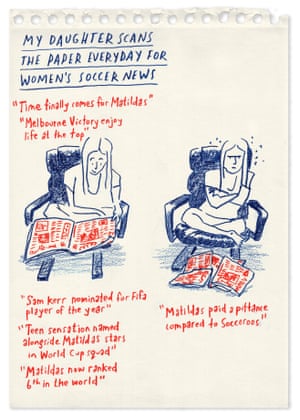 MY DAUGHTER SCANS
THE PAPER EVERYDAY FOR
WOMEN'S SOCCER NEWS
"Time finally comes for Matildas"
"Melbourne Victory enjoy
life at the top"
"Sam Kerr nominated for Fifa
player of the year"
"Teen sensation named
alongside Matildas stars
in World Cup squad"
"Matildas now ranked
6th in the world"
"Matildas paid a pittance
compared to Socceroos"